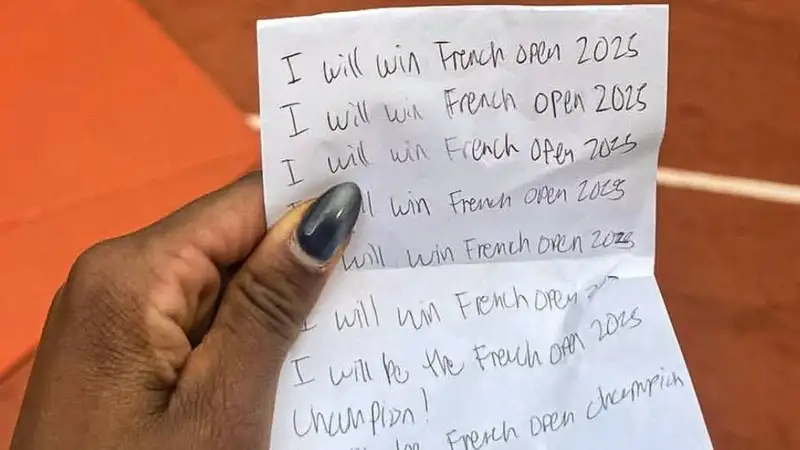 I will win French open 2025
I will win French open 2025
I will win French open 2025
will win French open 2025
will win French open 2025
I will win French open
I will be the French open 2025
Champion!
French open champion